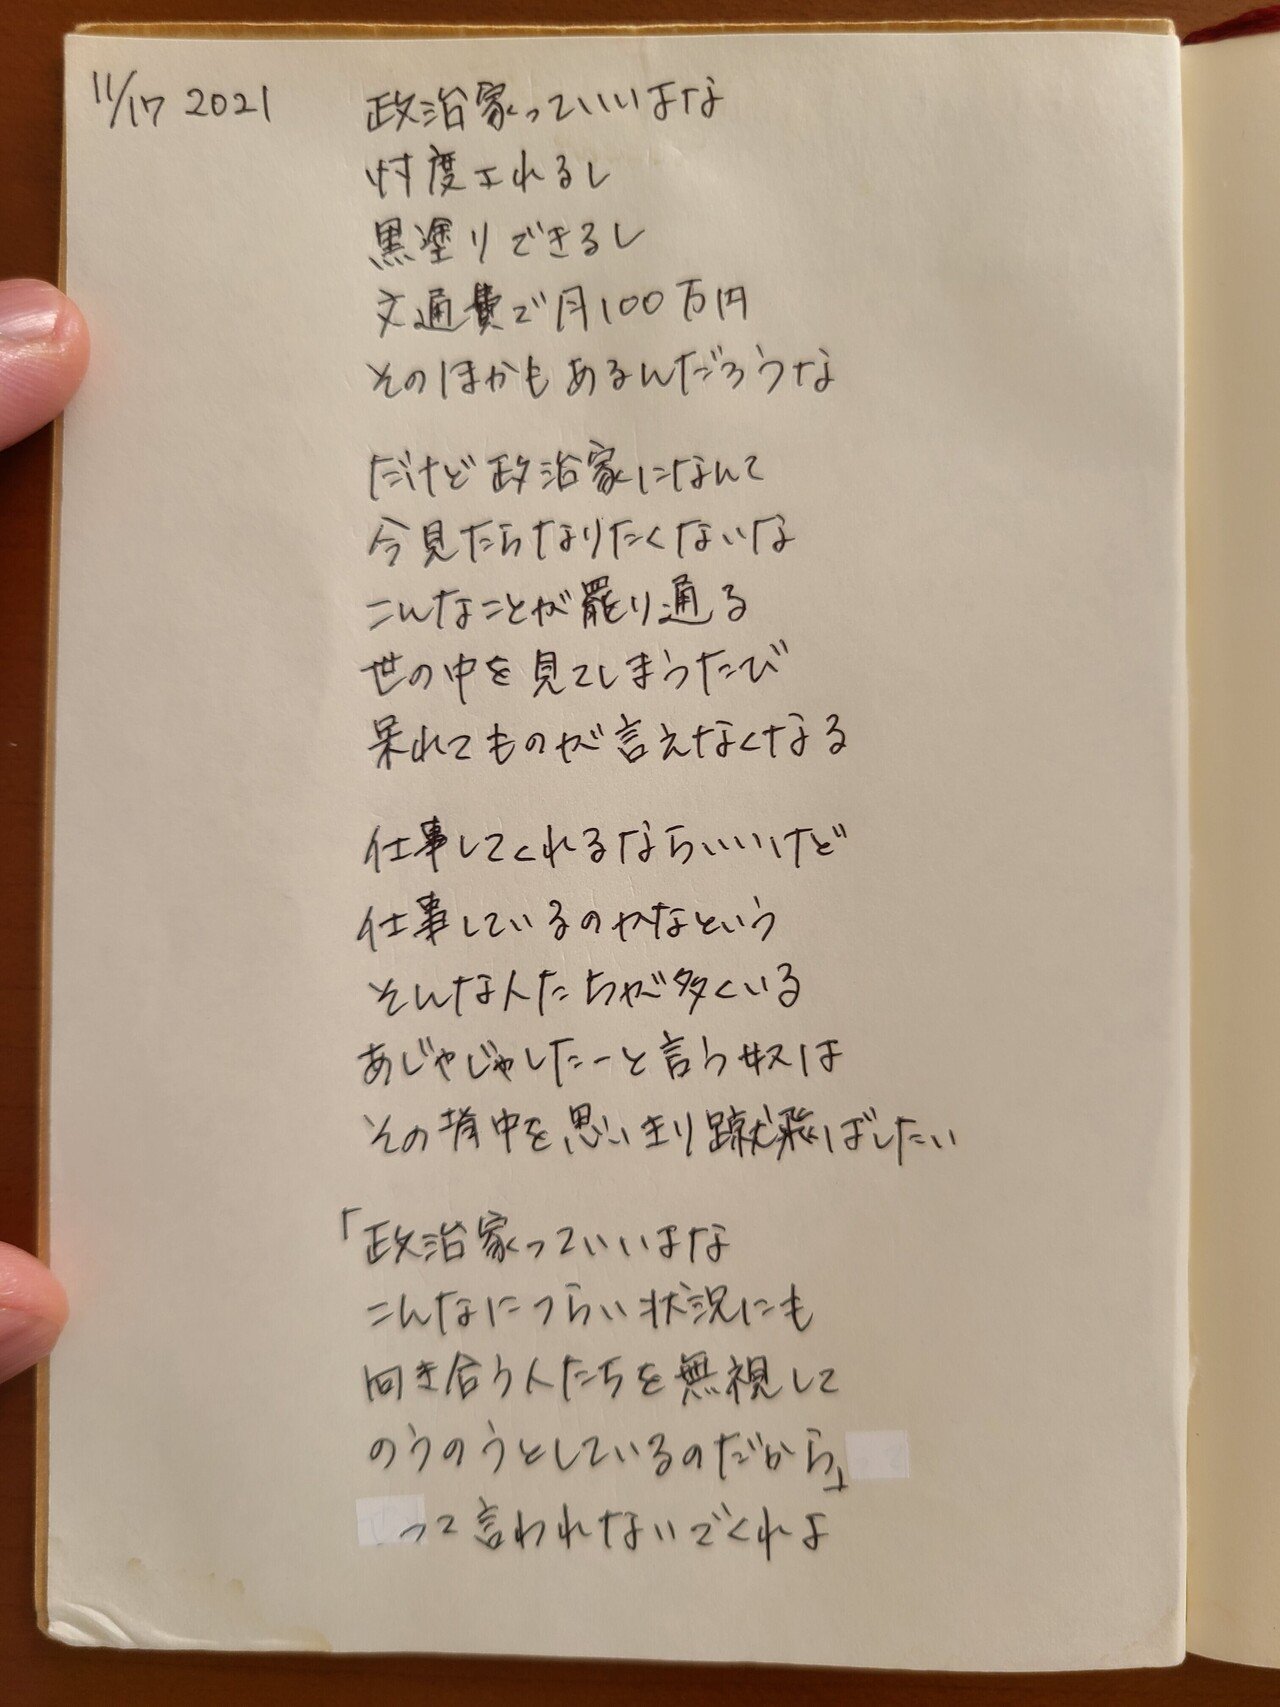 11/17 2021
政治家っていいよな
忖度されるし
黒塗りできるし
文通費で月100万円
そのほかもあるんだろうな
だけど政治家になんて
今見たらなりたくないな
こんなことが罷り通る
世の中を見てしまうたび
呆れてものが言えなくなる
仕事してくれるならいいけど
仕事しているのかなという
そんな人たちが多くいる
あじゃじゃしたーと言う奴は
その背中を思いきり蹴飛ばしたい
「政治家っていいよな
こんなにつらい状況にも
向き合う人たちを無視して
のうのうとしているのだから」
って言われないでくれよ